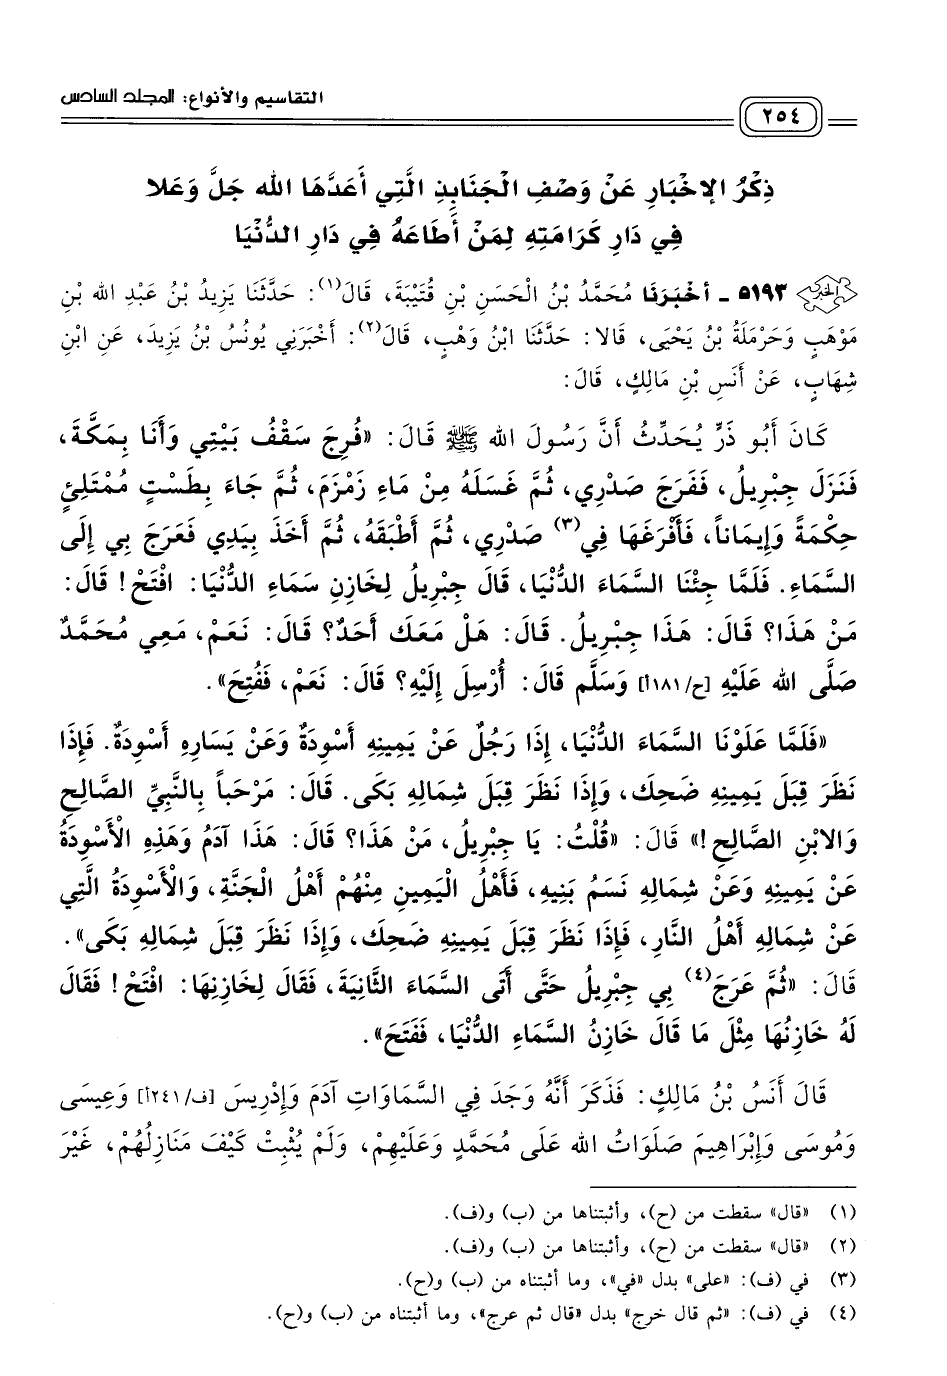 التقاسيم والأنواع: المجلد السادس
٢٥٤
ذِكْرُ الإخْبَارِ عَنْ وَصْفِ الْجَنَابِذِ الَّتِي أَعَدَّهَا الله جَلَّ وَعَلا
فِي دَارِ كَرَامَتِهِ لِمَنْ أَطَاعَهُ فِي دَارِ الدُّنْيَا
٥١٩٣ ـ أَخْبَرَنَا مُحَمَّدُ بْنُ الْحَسَنِ بْنِ قُتَيْبَةَ، قَالَ(١): حَدَّثَنَا يَزِيدُ بْنُ عَبْدِ الله بْنِ
مَوْهَبٍ وَحَرْمَلَةُ بْنُ يَحْيَى، قَالا: حَدَّثَنَا ابْنُ وَهْبٍ، قَالَ(٢): أَخْبَرَنِي يُونُسُ بْنُ يَزِيدَ، عَنِ ابْنِ
شِهَابٍ، عَنْ أَنَسِ بْنِ مَالِكٍ، قَالَ:
كَانَ أَبُو ذَرٍّ يُحَدِّثُ أَنَّ رَسُولَ الله ﷺ قَالَ: «فُرِجَ سَقْفُ بَيْتِي وَأَنَا بِمَكَّةَ،
فَنَزَلَ جِبْرِيلُ، فَفَرَجَ صَدْرِي، ثُمَّ غَسَلَهُ مِنْ مَاءِ زَمْزَمَ، ثُمَّ جَاءَ بِطَسْتٍ مُمْتَلِئٍ
حِكْمَةً وَإِيمَاناً، فَأَفْرَغَهَا فِي(٣) صَدْرِي، ثُمَّ أَطْبَقَهُ، ثُمَّ أَخَذَ بِيَدِي فَعَرَجَ بِي إِلَى
السَّمَاءِ. فَلَمَّا جِئْنَا السَّمَاءَ الدُّنْيَا، قَالَ جِبْرِيلُ لِخَازِنِ سَمَاءِ الدُّنْيَا: افْتَحْ! قَالَ:
مَنْ هَذَا؟ قَالَ: هَذَا جِبْرِيلُ. قَالَ: هَلْ مَعَكَ أَحَدٌ؟ قَالَ: نَعَمْ، مَعِي مُحَمَّدٌ
صَلَّى الله عَلَيْهِ [ح/١٨١أ] وَسَلَّم قَالَ: أُرْسِلَ إِلَيْهِ؟ قَالَ: نَعَمْ، فَفُتِحَ».
«فَلَمَّا عَلَوْنَا السَّمَاءَ الدُّنْيَا، إِذَا رَجُلٌ عَنْ يَمِينِهِ أَسْوِدَةٌ وَعَنْ يَسَارِهِ أَسْوِدَةٌ. فَإِذَا
نَظَرَ قِبَلَ يَمِينِهِ ضَحِكَ، وَإِذَا نَظَرَ قِبَلَ شِمَالِهِ بَكَى. قَالَ: مَرْحَباً بِالنَّبِيِّ الصَّالِحِ
وَالابْنِ الصَّالِحِ!» قَالَ: «قُلْتُ: يَا جِبْرِيلُ، مَنْ هَذَا؟ قَالَ: هَذَا آدَمُ وَهَذِهِ الْأَسْوِدَةُ
عَنْ يَمِينِهِ وَعَنْ شِمَالِهِ نَسَمُ بَنِيهِ، فَأَهْلُ الْيَمِينِ مِنْهُمْ أَهْلُ الْجَنَّةِ، وَالْأَسْوِدَةُ الَّتِي
عَنْ شِمَالِهِ أَهْلُ النَّارِ، فَإِذَا نَظَرَ قِبَلَ يَمِينِهِ ضَحِكَ، وَإِذَا نَظَرَ قِبَلَ شِمَالِهِ بَكَى».
قَالَ: «ثُمَّ عَرَجَ(٤) بِي جِبْرِيلُ حَتَّى أَتَى السَّمَاءَ الثَّانِيَةَ، فَقَالَ لِخَازِنِهَا: افْتَحْ! فَقَالَ
لَهُ خَازِنُهَا مِثْلَ مَا قَالَ خَازِنُ السَّمَاءِ الدُّنْيَا، فَفَتَحَ».
قَالَ أَنَسُ بْنُ مَالِكٍ: فَذَكَرَ أَنَّهُ وَجَدَ فِي السَّمَاوَاتِ آدَمَ وَإِدْرِيسَ [ف/٢٤١أ] وَعِيسَى
وَمُوسَى وَإِبْرَاهِيمَ صَلَوَاتُ الله عَلَى مُحَمَّدٍ وَعَلَيْهِمْ، وَلَمْ يُثْبِتْ كَيْفَ مَنَازِلُهُمْ، غَيْرَ
(١) «قال» سقطت من (ح)، وأثبتناها من (ب) و(ف).
(٢) «قال» سقطت من (ح)، وأثبتناها من (ب) و(ف).
(٣) في (ف): «على» بدل «في»، وما أثبتناه من (ب) و(ح).
(٤) في (ف): «ثم قال خرج» بدل «قال ثم عرج»، وما أثبتناه من (ب) و(ح).